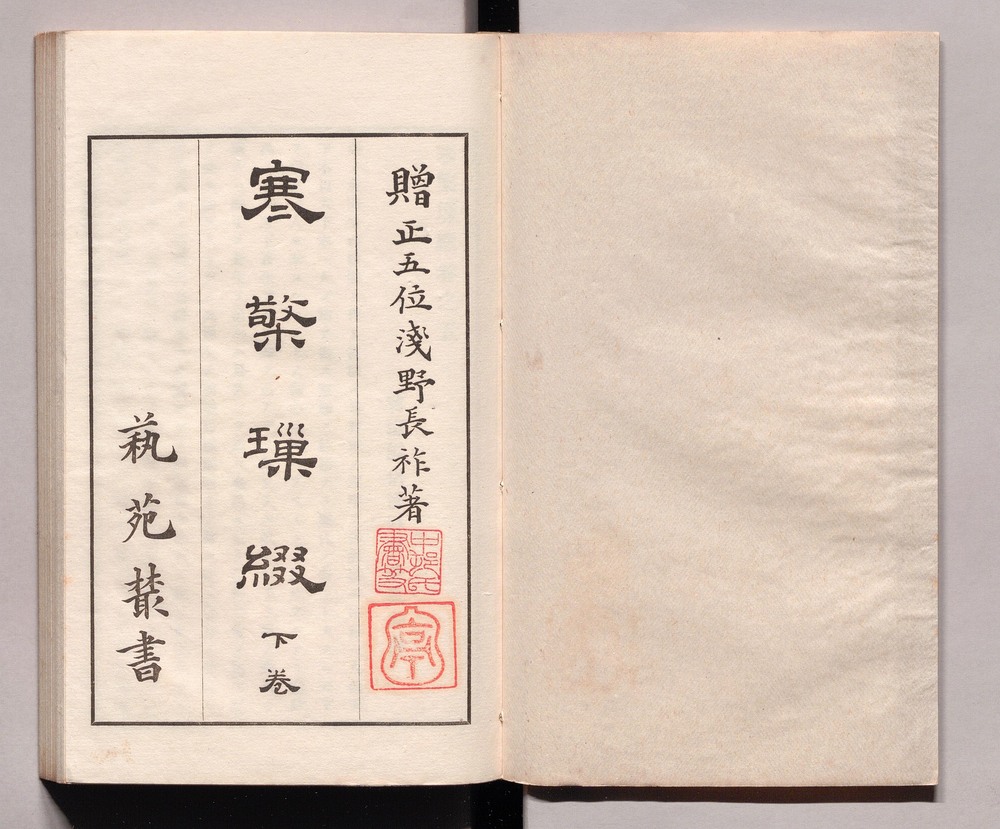 贈正五位淺野長祚著
寒檠璅綴 下卷
蓺苑叢書
亭